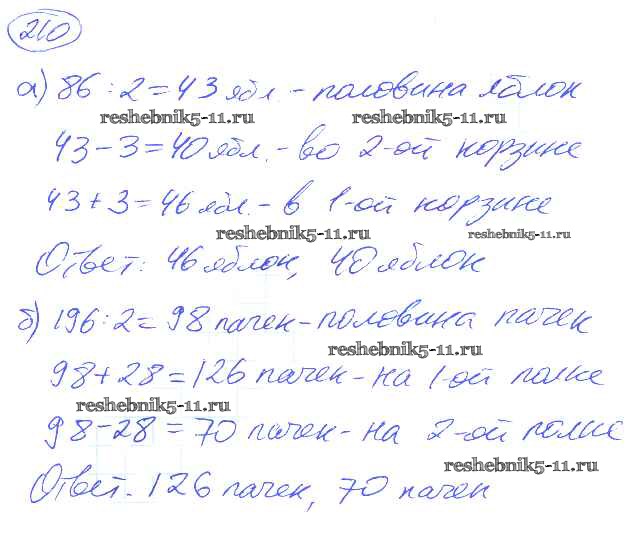 210
а) 86 : 2 = 43 ябл. - половина яблок
reshebnik5-11.ru reshebnik5-11.ru
43 - 3 = 40 ябл. - во 2-ой корзине
43 + 3 = 46 ябл. - в 1-ой корзине
reshebnik5-11.ru reshebnik5-11.ru
Ответ: 46 яблок, 40 яблок
б) 196 : 2 = 98 пачек - половина пачек
reshebnik5-11.ru
98 + 28 = 126 пачек - на 1-ой полке
reshebnik5-11.ru
98 - 28 = 70 пачек - на 2-ой полке
reshebnik5-11.ru
Ответ. 126 пачек, 70 пачек